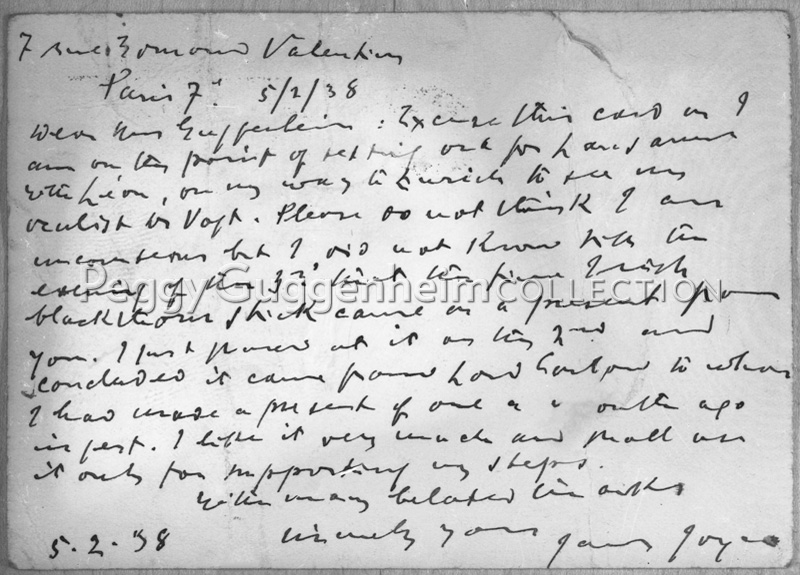 7 rue Edmond Valentin
Paris 7e 5/2/38
Dear Mrs Guggenheim : Excuse this card as I
am on the point of setting out for Lausanne
with Léon, on my way to Zurich to see my
oculist Dr Vogt. Please do not think I am
uncourteous but I did not know till the
evening of the 3rd that the fine Irish
blackthorn stick came as a present from
you. I just passed at it on the 2nd and
concluded it came from Lord Carlow to whom
I had made a present of one a month ago
in jest. I like it very much and shall use
it only for supporting my steps.
With many belated thanks
sincerely yours
James Joyce
5.2.'38
Peggy Guggenheim COLLECTION